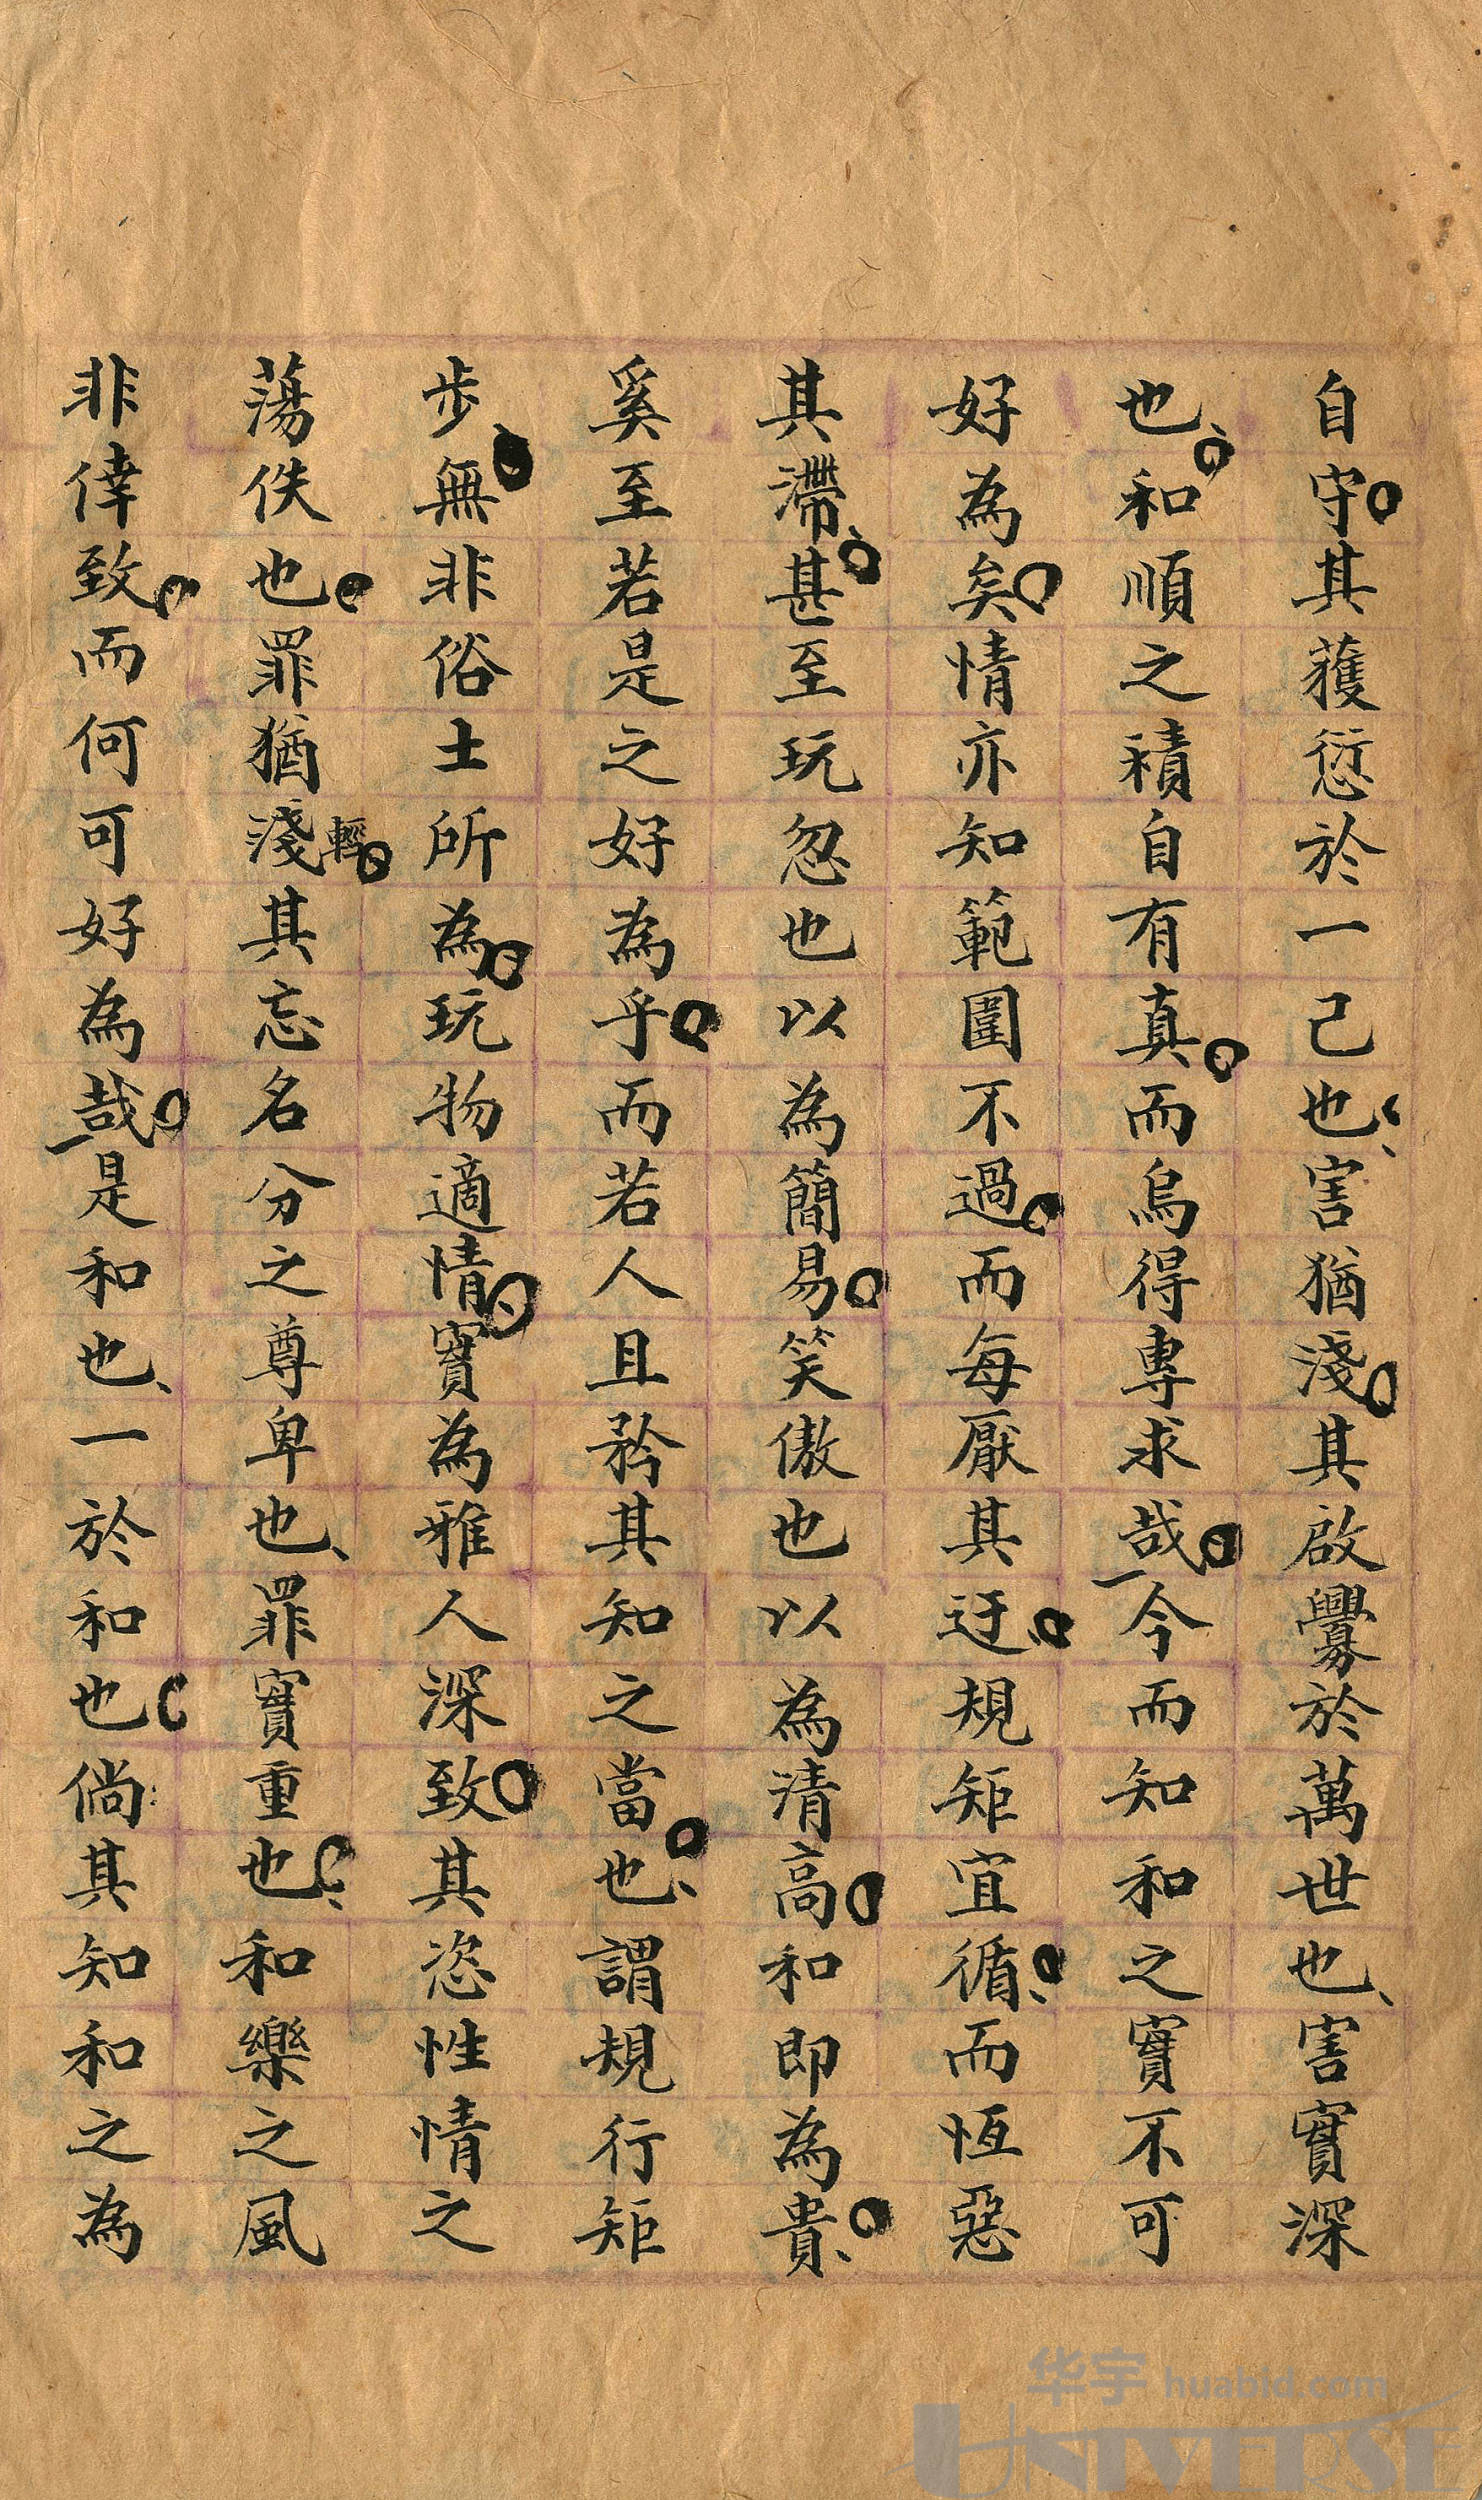 自守其獲愆於一己也害猶淺其啟釁於萬世也害實深
也和順之積自有真而烏得專求哉今而知和之實不可
好為矣情亦知範圍不過而每厭其迂規矩宜循而恆惡
其滯甚至玩忽也以為簡易笑傲也以為清高和即為貴
奚至若是之好為乎而若人且矜其知之當也謂規行矩
步無非俗士所為玩物適情實為雅人深致其恣性情之
蕩佚也罪猶淺其忘名分之尊卑也罪實重也和樂之風
輕
非倖致而何可好為哉是和也一於和也倘其知和之為
华宇 huabid.com
UNIVERSE